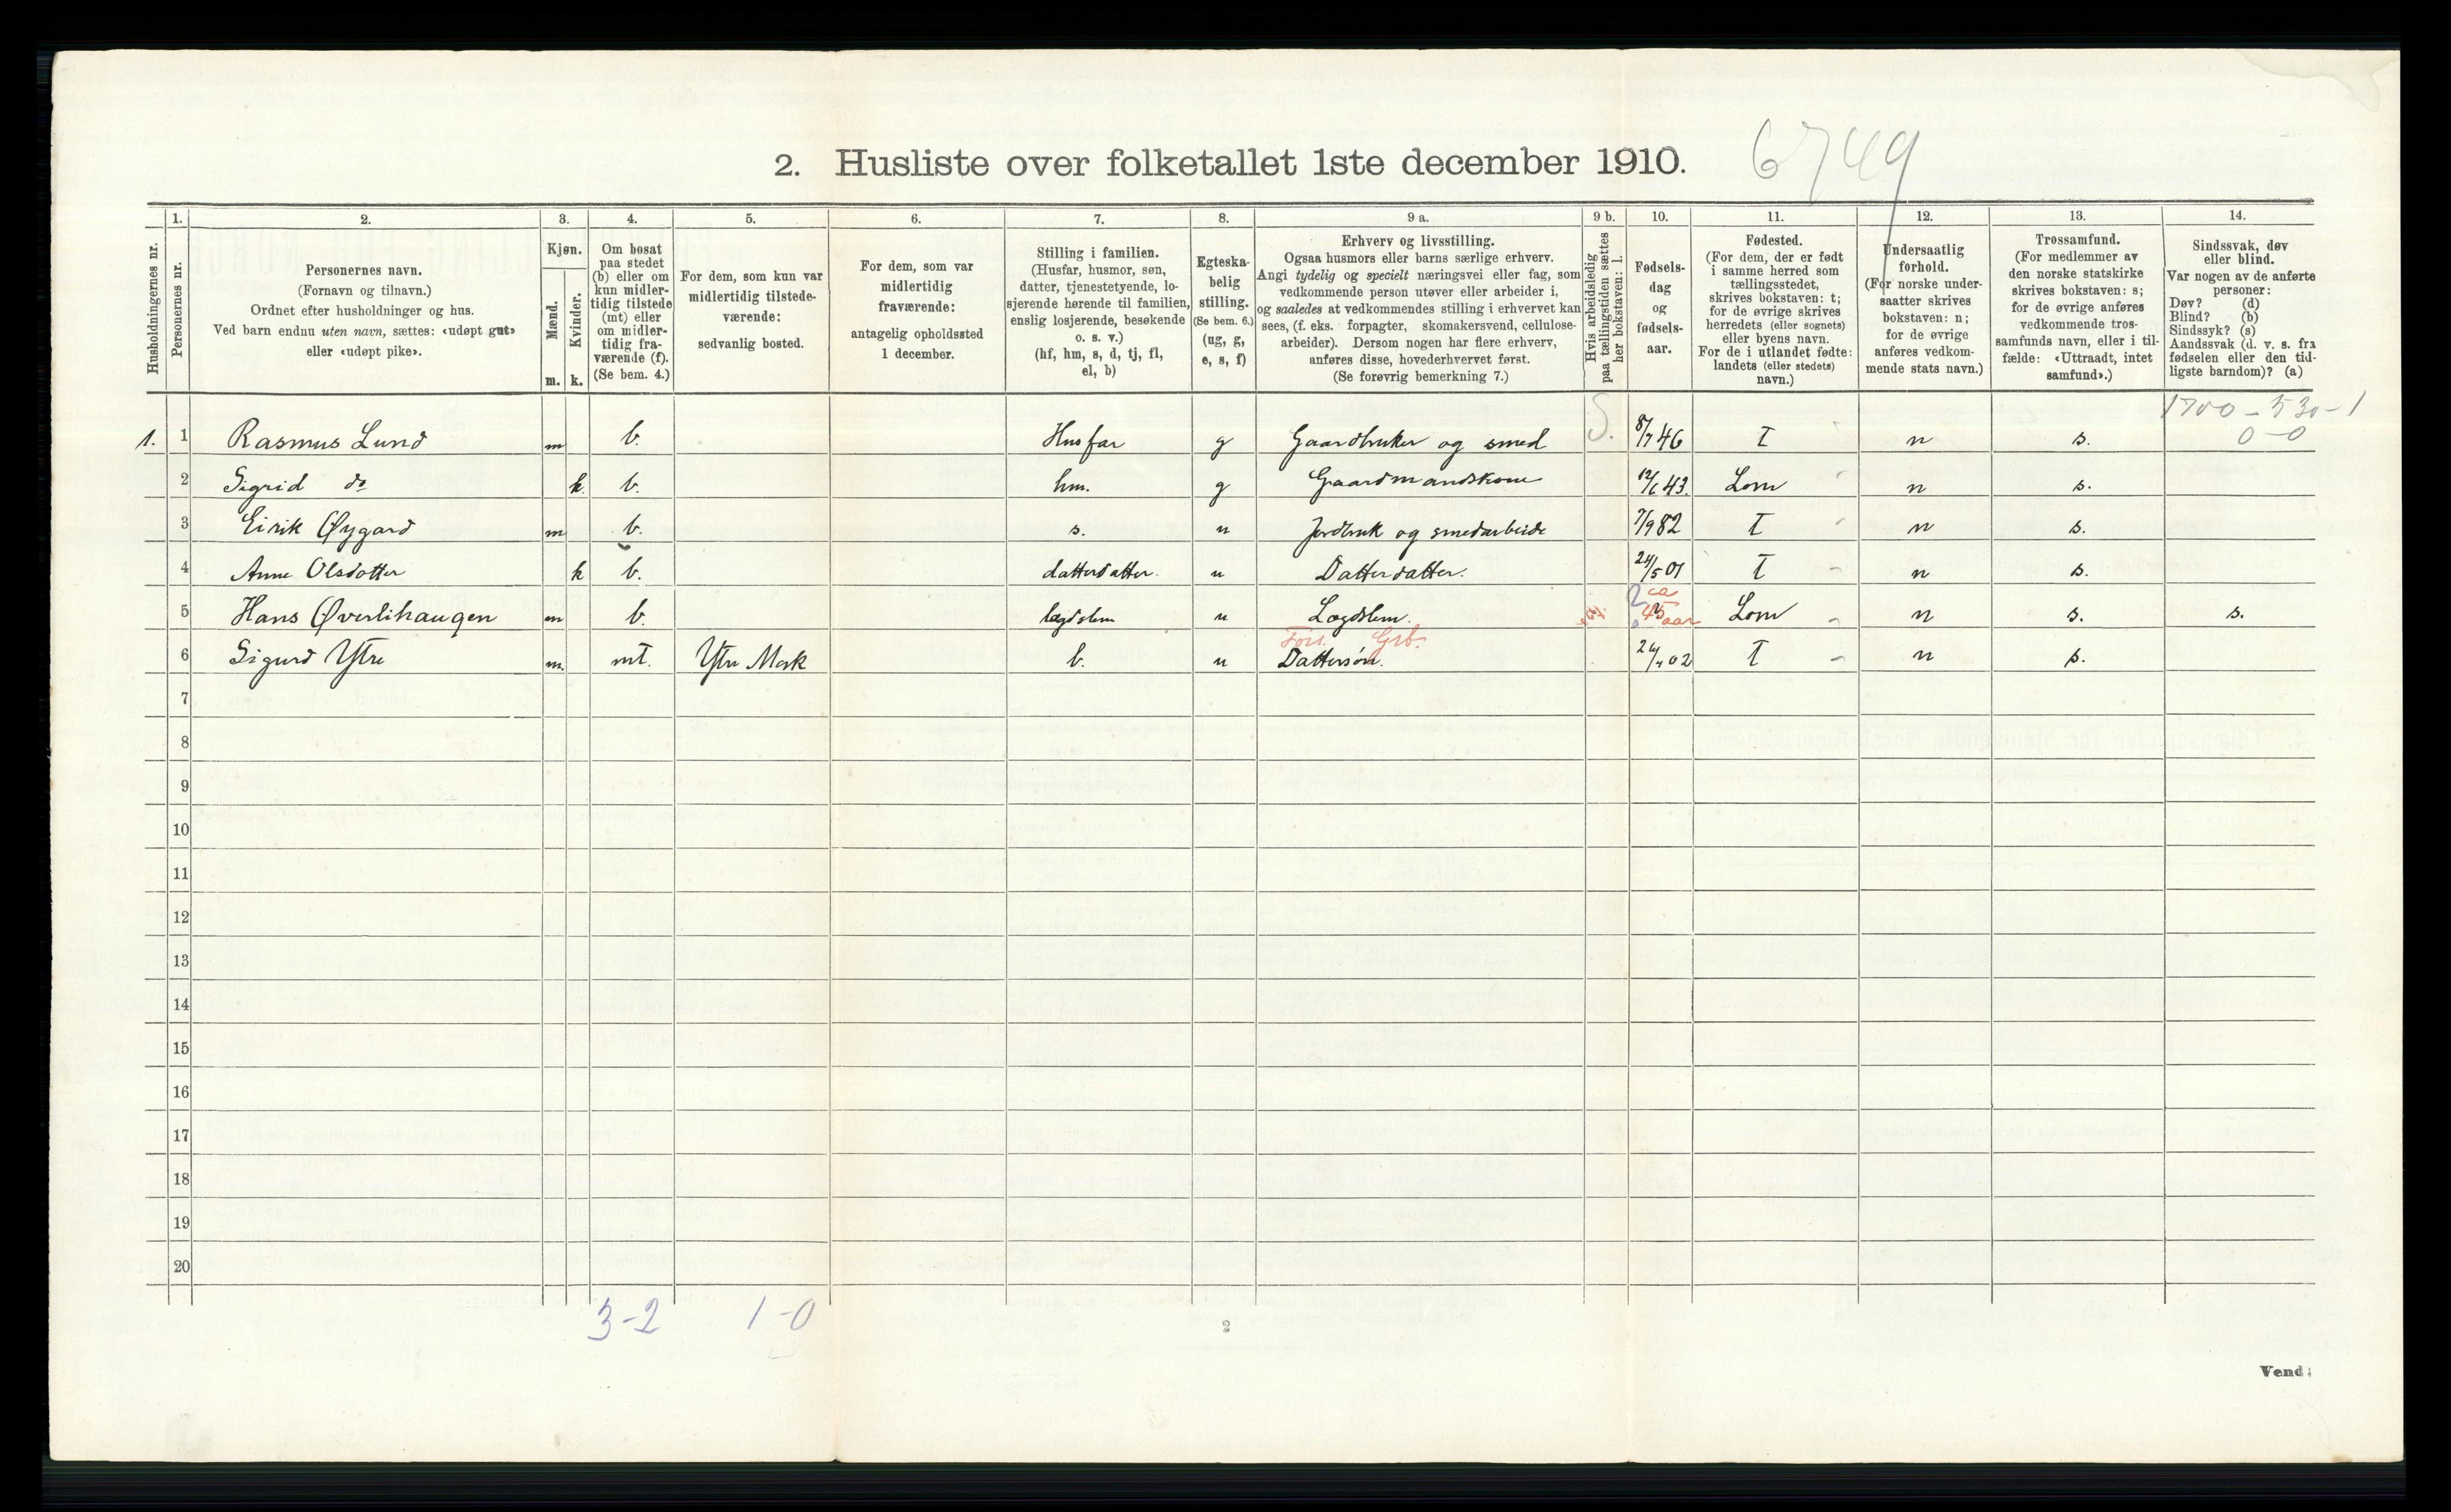 6749
2. Husliste over folketallet 1ste december 1910.
Husholdningernes nr.
1.
Personernes nr.
2.
Personernes navn.
(Fornavn og tilnavn.)
Ordnet efter husholdninger og hus.
Ved barn endnu uten navn, sættes: «udøpt gut»
eller «udøpt pike».
3.
Kjøn.
Mænd.
Kvinder.
m. k.
4.
Om bosat
paa stedet
(b) eller om
kun midler-
tidig tilstede
(mt) eller
om midler-
tidig fra-
værende (f).
(Se bem. 4.)
5.
For dem, som kun var
midlertidig tilstede-
værende:
sedvanlig bosted.
6.
For dem, som var
midlertidig
fraværende:
antagelig opholdssted
1 december.
7.
Stilling i familien.
(Husfar, husmor, søn,
datter, tjenestetyende, lo-
sjerende hørende til familien,
enslig losjerende, besøkende
o. s. v.)
(hf, hm, s, d, tj, fl,
el, b)
8.
Egteska-
belig
stilling.
(Se bem. 6.)
(ug, g,
e, s, f)
9 a.
Erhverv og livsstilling.
Ogsaa husmors eller barns særlige erhverv.
Angi tydelig og specielt næringsvei eller fag, som
vedkommende person utøver eller arbeider i,
og saaledes at vedkommendes stilling i erhvervet kan
sees, (f. eks. forpagter, skomakersvend, cellulose-
arbeider). Dersom nogen har flere erhverv,
anføres disse, hovederhvervet først.
(Se forøvrig bemerkning 7.)
9 b.
Hvis arbeidsledig
paa tællingstiden sættes
her bokstaven: l.
10.
Fødsels-
dag
og
fødsels-
aar.
11.
Fødested.
(For dem, der er født
i samme herred som
tællingsstedet,
skrives bokstaven: t;
for de øvrige skrives
herredets (eller sognets)
eller byens navn.
For de i utlandet fødte:
landets (eller stedets)
navn.)
12.
Undersaatlig
forhold.
(For norske under-
saatter skrives
bokstaven: n;
for de øvrige
anføres vedkom-
mende stats navn.)
13.
Trossamfund.
(For medlemmer av
den norske statskirke
skrives bokstaven: s;
for de øvrige anføres
vedkommende tros-
samfunds navn, eller i til-
fælde: «Uttraadt, intet
samfund».)
14.
Sindssvak, døv
eller blind.
Var nogen av de anførte
personer:
Døv? (d)
Blind? (b)
Sindssyk? (s)
Aandssvak (d. v. s. fra
fødselen eller den tid-
ligste barndom)? (a)
1700 - 530 - 1
0 - 0
1. 1 Rasmus Lund m b. Husfar g Gaardbruker og smed S. 8/7 46 T n s.
2 Sigrid do k. b. hm. g Gaardmandskone 12/6 43. Lom n s.
3 Eirik Øygard m b. s. u Jordbruk og smedarbeide 7/9 82 T n s.
4 Anne Olsdotter k b. datterdatter. u Datterdatter. 24/5 01 T n s.
5 Hans Øverlihaugen m b. lægdslem u Lægdslem. ca 45 aar Lom n s. s.
Fors. Grb.
6 Sigurd Ytre m. mt. Ytre Mork b. u Dattersøn. 24/4 02 T n s.
7
8
9
10
11
12
13
14
15
16
17
18
19
20
3-2 1-0
2
Vend!